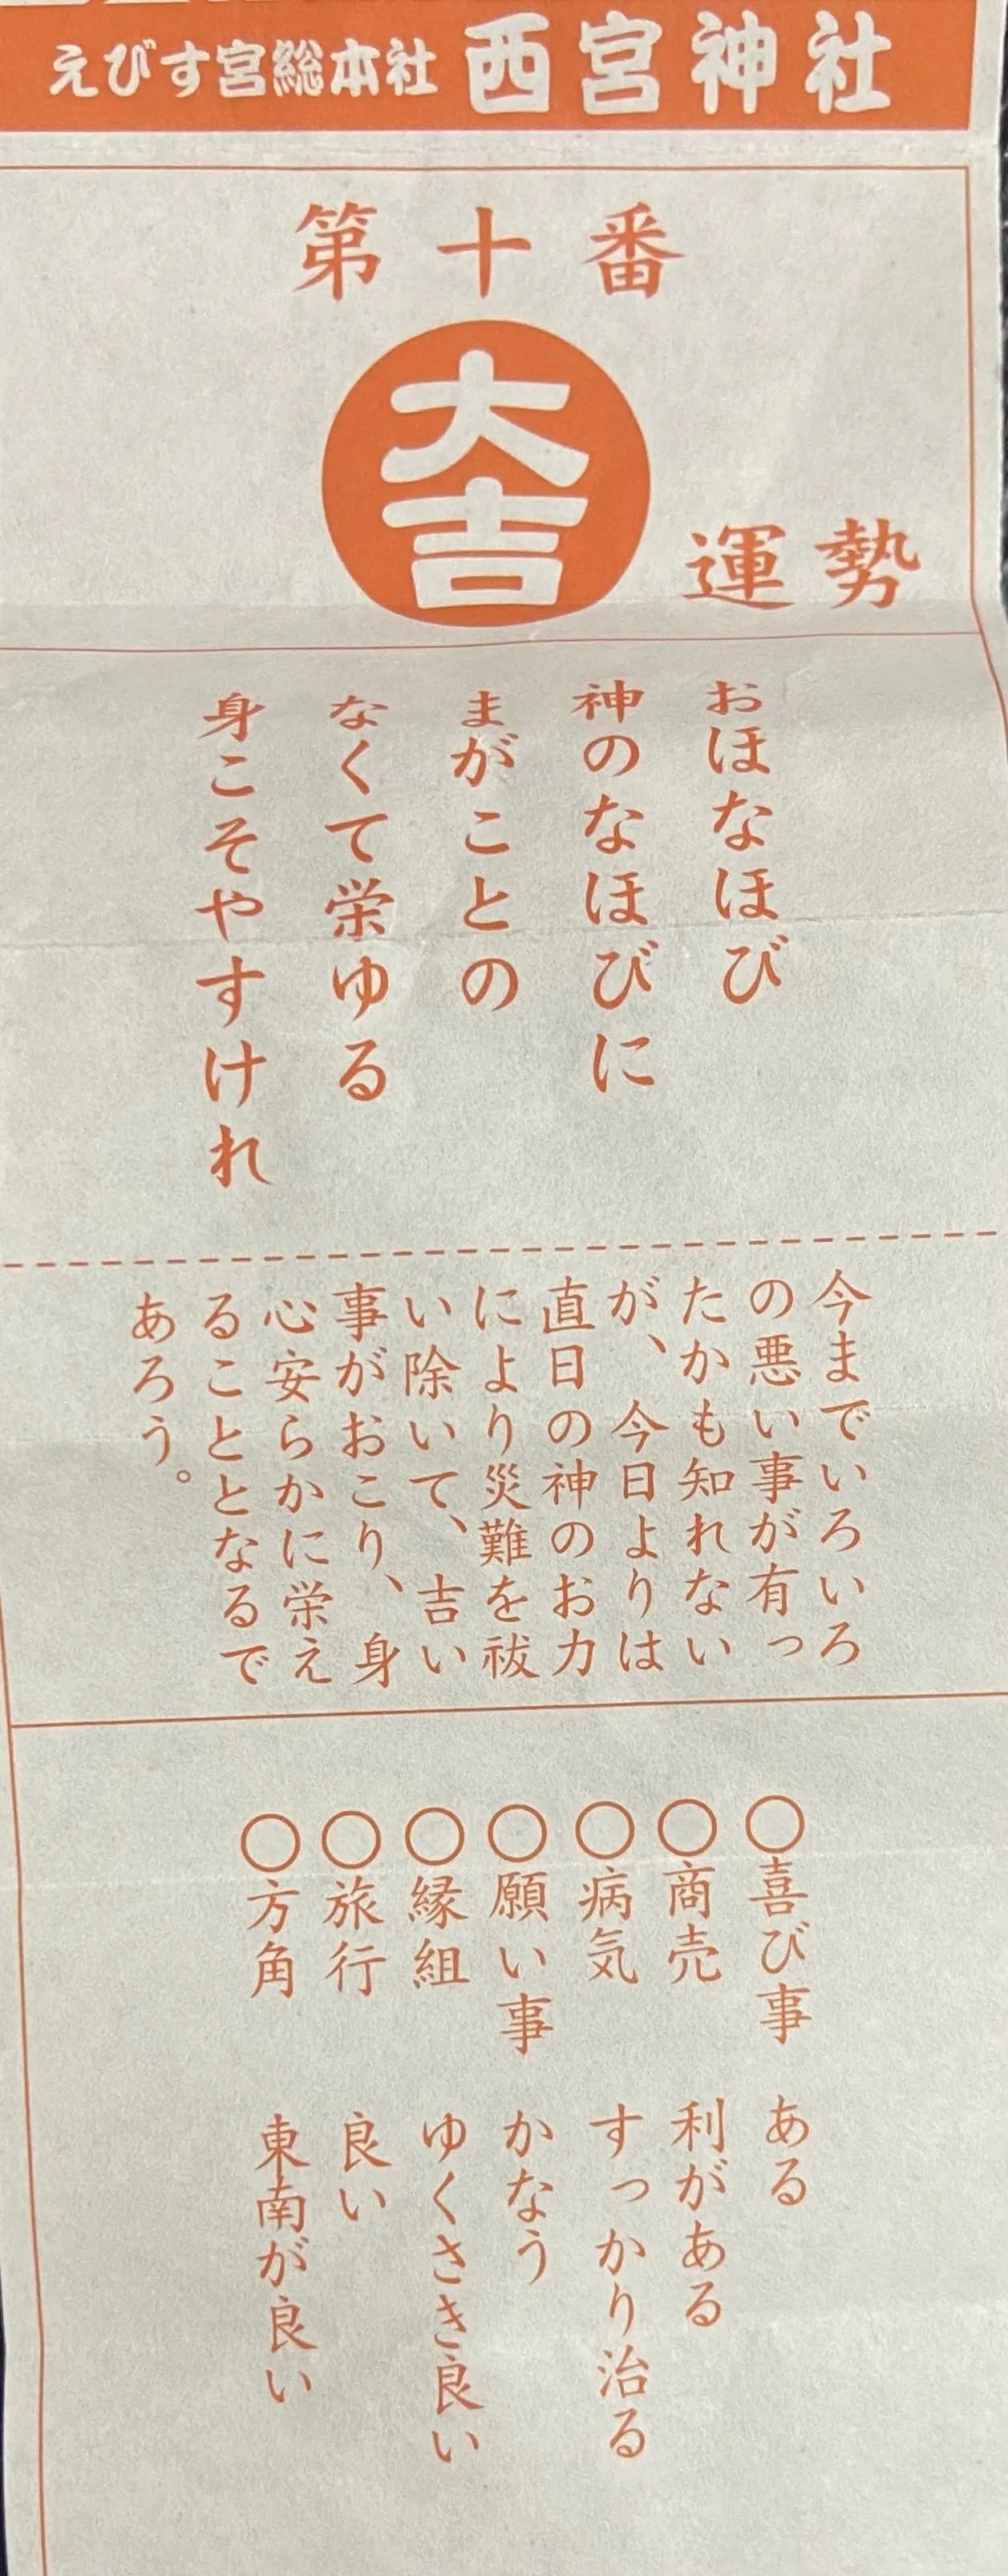 えびす宮総本社 西宮神社
第十番
大吉
運勢
おほなほび
神のなほびに
まがことの
なくて栄ゆる
身こそやすけれ
今までいろいろ
の悪い事が有っ
たかも知れない
が、今日よりは
直日の神のお力
により災難を祓
い除いて、吉い
事がおこり、身
心安らかに栄え
ることとなるで
あろう。
○喜び事 ある
○商売 利がある
○病気 すっかり治る
○願い事 かなう
○縁組 ゆくさき良い
○旅行 良い
○方角 東南が良い